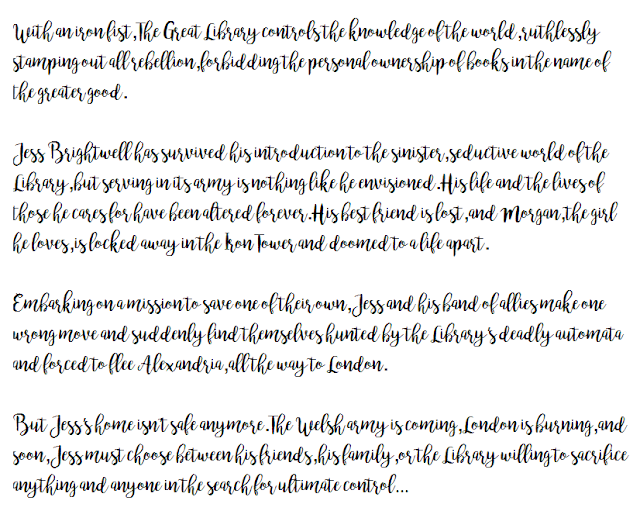 With an iron fist, The Great Library controls the knowledge of the world, ruthlessly
stamping out all rebellion, forbidding the personal ownership of books in the name of
the greater good.
Jess Brightwell has survived his introduction to the sinister, seductive world of the
Library, but serving in its army is nothing like he envisioned. His life and the lives of
those he cares for have been altered forever. His best friend is lost, and Morgan, the girl
he loves, is locked away in the Iron Tower and doomed to a life apart.
Embarking on a mission to save one of their own, Jess and his band of allies make one
wrong move and suddenly find themselves hunted by the Library's deadly automata
and forced to flee Alexandria, all the way to London.
But Jess's home isn't safe anymore. The Welsh army is coming, London is burning, and
soon, Jess must choose between his friends, his family, or the Library willing to sacrifice
anything and anyone in the search for ultimate control...